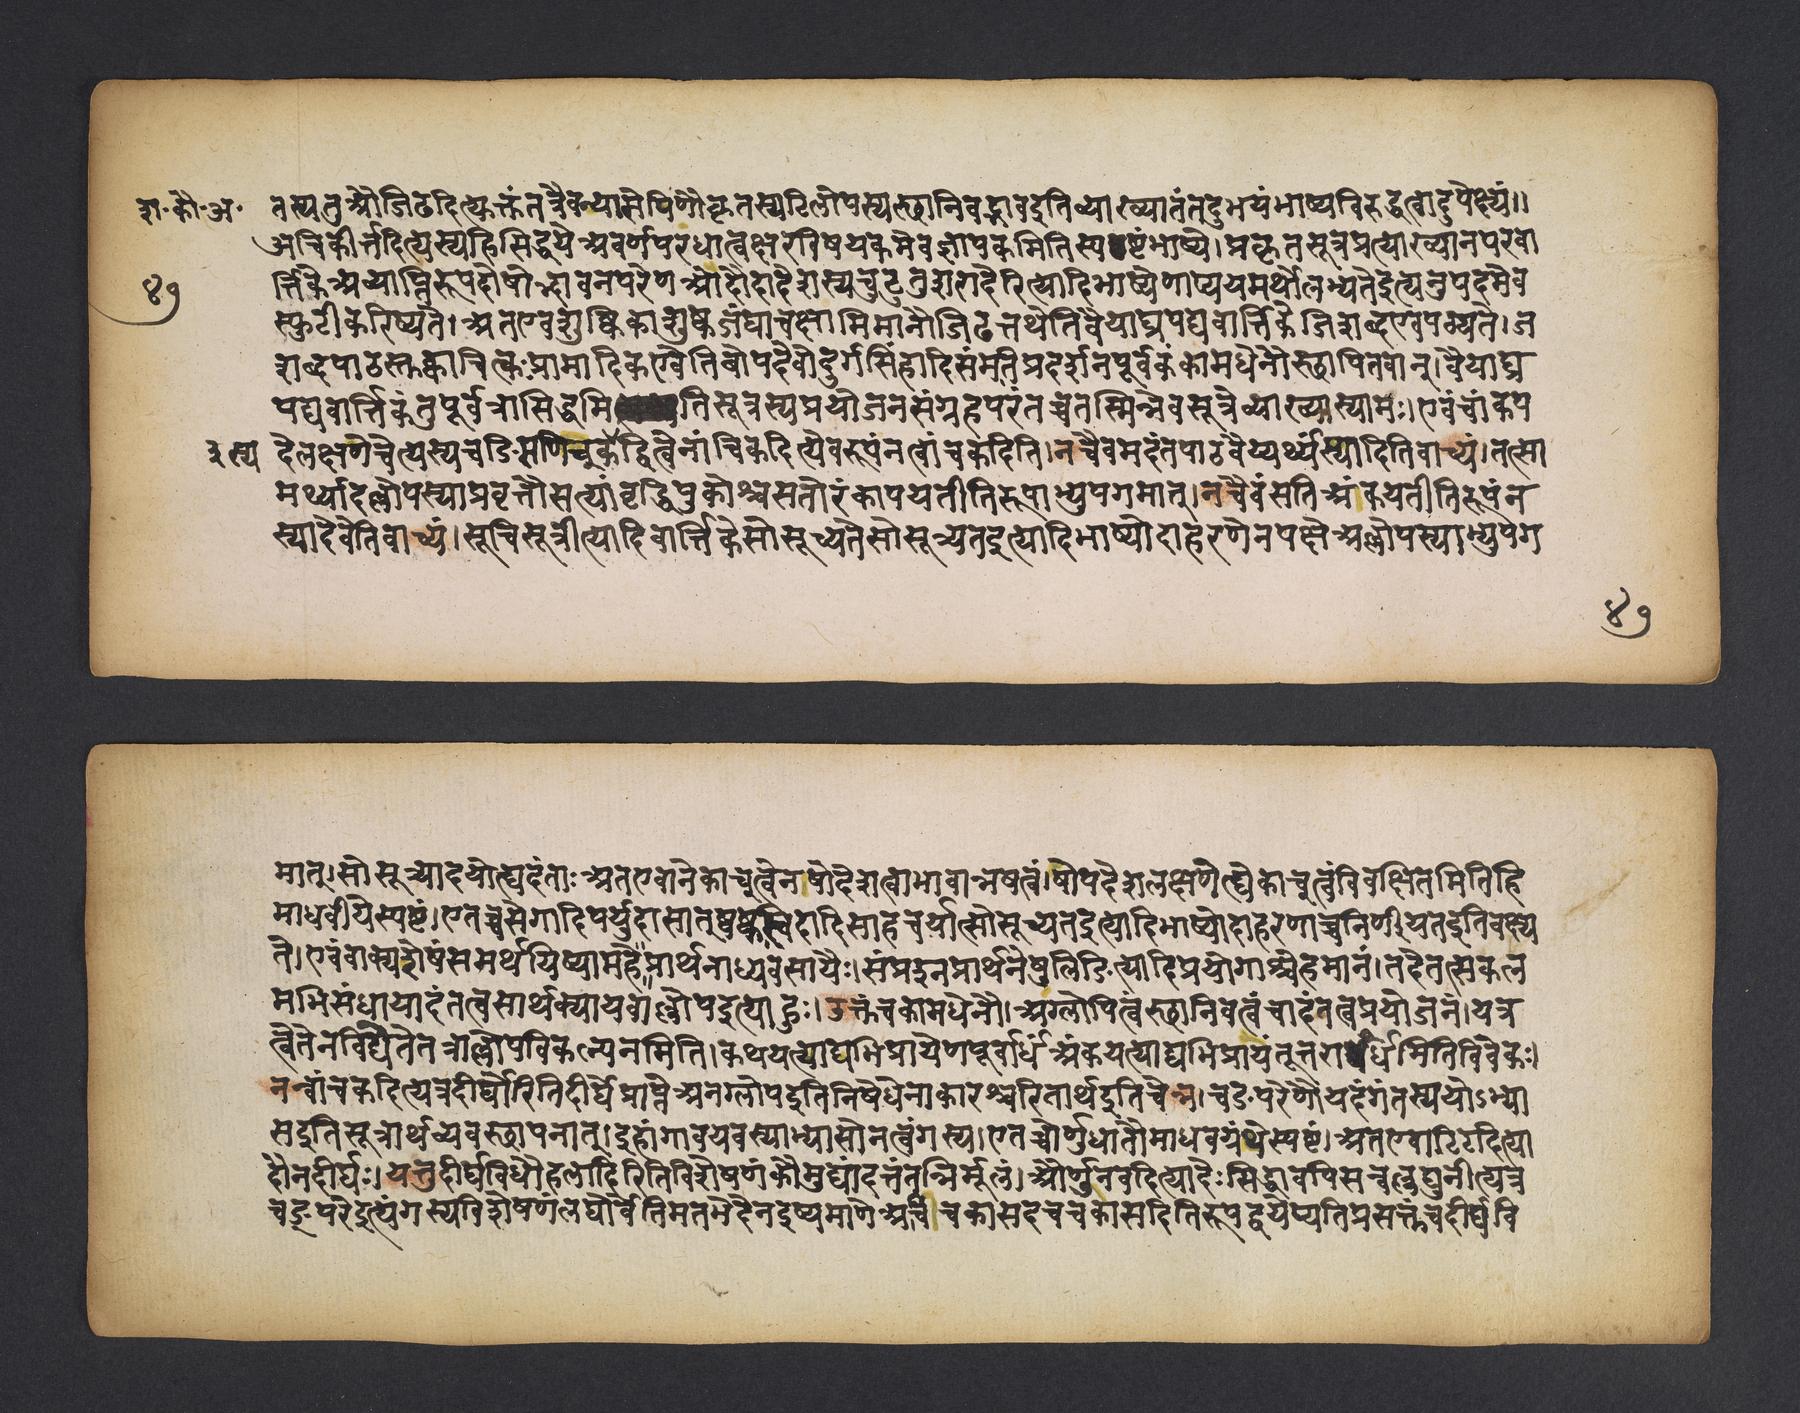 श॰ कौ॰ अ॰
४७
तस्य तु औजिढदित्युक्तं तत्रैव न्यासेपि णौ कृतस्य टिलोपस्य स्थानिवद्भावदुति व्याख्यातं तदुभयं भाष्यविरुद्धत्वादुपेक्ष्यं॥
अचिकीर्त्तदित्यस्य हि सिद्धये अवर्णपरधात्वक्षरविषयकमेव ज्ञापकमिति स्पष्टं भाष्ये। प्रकृतसूत्रप्रत्याख्यानपरवा
र्त्तिके अव्याप्तिरूपदोषोद्भावनपरेण
स्फुटीकरिष्यते। अतएव शुष्किका शुष्कजंघा च क्षामिमानौजिढत्तथेति वैयाघ्रपद्यवार्त्तिके जिशब्दएव पठ्यते। ज
शब्दपाठस्तु क्वाचित्कः प्रामादिक एवेति बोपदेवो दुर्गसिंहादिसंमतिप्रदर्शनपूर्वकं कामधेनौ स्थापितवान्। वैयाघ्र
पद्यवार्त्तिकं तु पूर्वत्रासिद्धमिति सूत्रस्य प्रयोजनसंग्रहपरं तच्च तस्मिन्नेव सूत्रे व्याख्यास्यामः। एवं चांकप
इत्यस्य
देलक्षणे चेत्यस्य चङि द्वित्वेनांचिकदित्येव रूपं नत्वांचकदिति। नचैवमदंतपाठवैय्यर्थ्यं स्यादिति वाच्यं। तत्सा
मर्थ्यादल्लोपस्याप्रवृत्तौ सत्यां वृद्धिपुकोश्च सतोरंकापयतीति रूपाभ्युपगमात्। नचैवं सति अंकयतीति रूपं न
स्यादेवेति वाच्यं। सूचिसूत्रीत्यादिवार्त्तिके सोसूच्यते सोसूत्र्यतदुत्यादिभाष्योदाहरणेन पक्षे अल्लोपस्याभ्युपग
४७
मात्। सोसूत्र्यादयोह्यदंताः अतएवानेकाच्त्वेन षोपदेशत्वाभावान्नषत्वं। षोपदेशलक्षणे ह्येकाच्त्वं विवक्षितमिति हि
माधवीये स्पष्टं। एतच्च सेगादिपर्युदासात् ष्वष्कस्विदादिसाहचर्यात्सोसूच्यतदुत्यादिभाष्योदाहरणाच्च निर्णीयतदुति वक्ष्य
ते। एवं वाक्यशेषं समर्थयिष्यामहे प्रार्थनाध्यवसायैः। संप्रश्नप्रार्थनेषु लिङित्यादिप्रयोगाश्चेह मानं। तदेतत्सकल
मभिसंधायादंतत्वसार्थक्याय वाल्लोपदुत्याहुः। उक्तं च कामधेनौ। अग्लोपित्वं स्थानिवत्वं चादंतत्वप्रयोजनं। यत्र
त्वेतेनविद्येतेतत्राल्लोपविकल्पनमिति। कथयत्याद्यभिप्रायेण पूर्वार्धं अंकयत्याद्यभिप्रायं तूत्तरार्धमिति विवेकः।
नन्वांचकदित्यत्र दीर्घोरिति दीर्घे प्राप्ते अनग्लोपदुति निषेधेनाकारश्चरितार्थदुति चेन्न। चङ्परे णौ यदंगं तस्य योऽभ्या
सदुति सूत्रार्थव्यवस्थापनात्। दुहांगावयवस्याभ्यासो नत्वंगस्य। एतच्चोर्णुधातौ माधवग्रंथे स्पष्टं। अतएवाटिटदित्या
दौ न दीर्घः। यत्तु दीर्घविधौ हलादिरिति विशेषणं कौमुद्यां दत्तं तन्निर्मूलं। और्णुनवदित्यादेः सिद्धावपि सन्वल्लघुनीत्यत्र
चङ्परेदुत्यंगस्य विशेषणं लघोर्वेति मतभेदेन दुष्यमाणे अचीचकासदचचकासदिति रूपद्वयेप्यतिप्रसक्तं च दीर्घवि